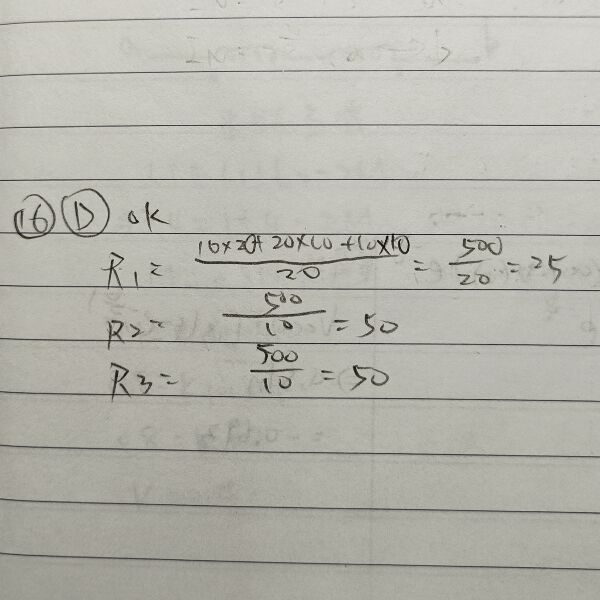 ⑯ Ⓓ ok
R1 = (10×20+20×10+10×10)/20 = 500/20 = 25
R2 = 500/10 = 50
R3 = 500/10 = 50